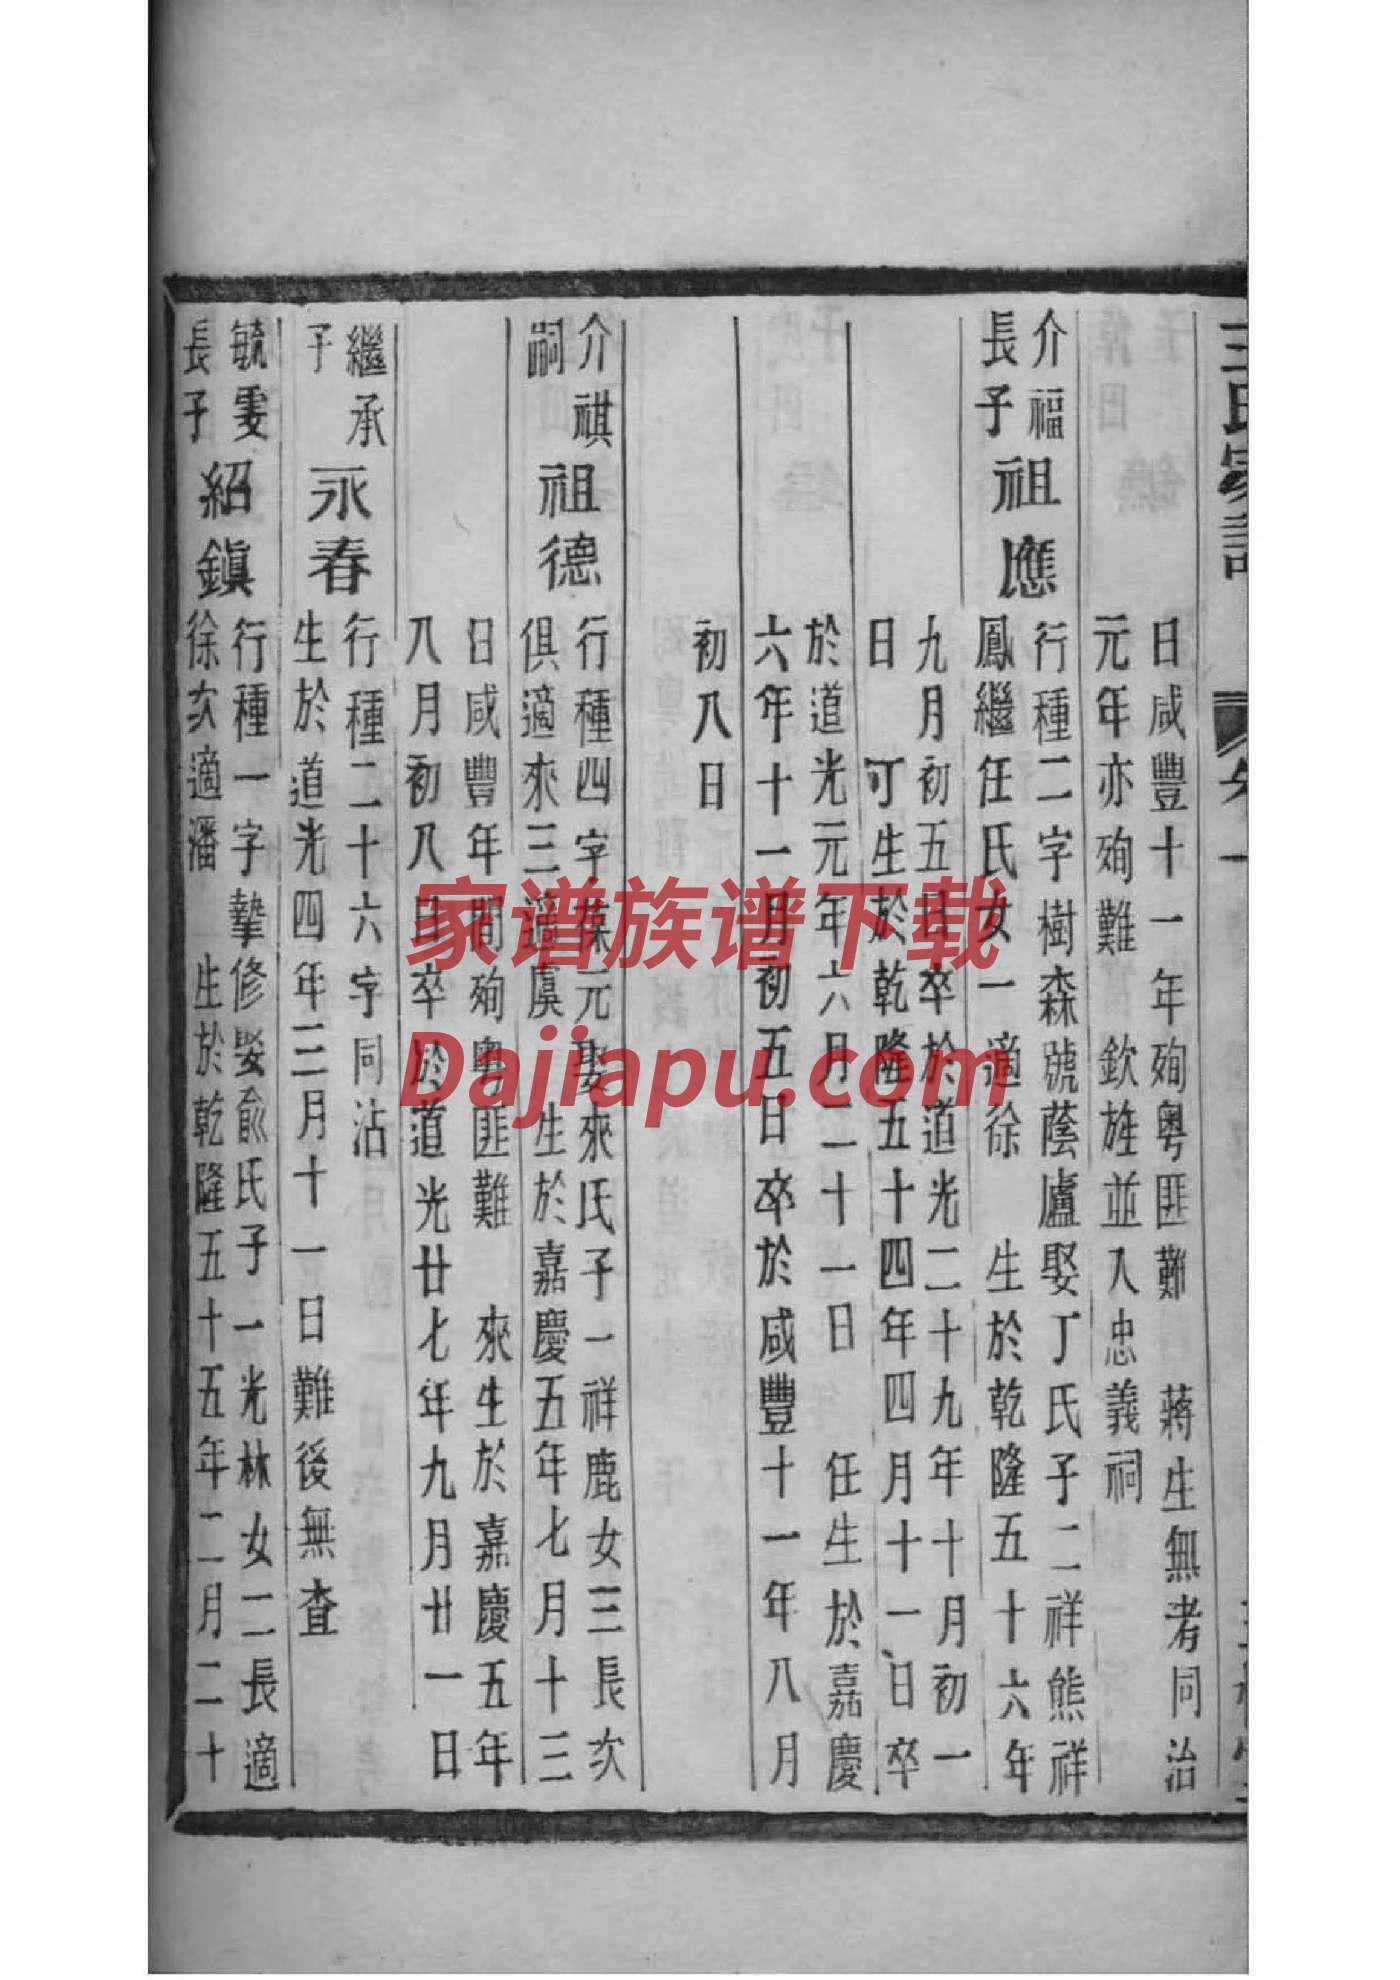 王氏家譜
卷一
日咸豐十一年殉粤匪難　蔣生無考同治
元年亦殉難　欽旌並入忠義祠
介福
長子
祖應
行種二字樹森號蔭廬娶丁氏子二祥熊祥
鳳繼任氏女一適徐　生於乾隆五十六年
九月初五日卒於道光二十九年十月初一
日　丁生於乾隆五十四年四月十一日卒
於道光元年六月二十一日　任生於嘉慶
六年十一月初五日卒於咸豐十一年八月
初八日
介祺
嗣
祖德
行種四字葆元娶來氏子一祥鹿女三長次
俱適來三適虞　生於嘉慶五年七月十三
日咸豐年間殉粤匪難　來生於嘉慶五年
八月初八日卒於道光廿七年九月廿一日
繼承
子
永春
行種二十六字同沾
生於道光四年三月十一日難後無查
毓雯
長子
紹鎮
行種一字摯修娶俞氏子一光林女二長適
徐次適潘　生於乾隆五十五年二月二十
家谱族谱下载
Dajiapu.com